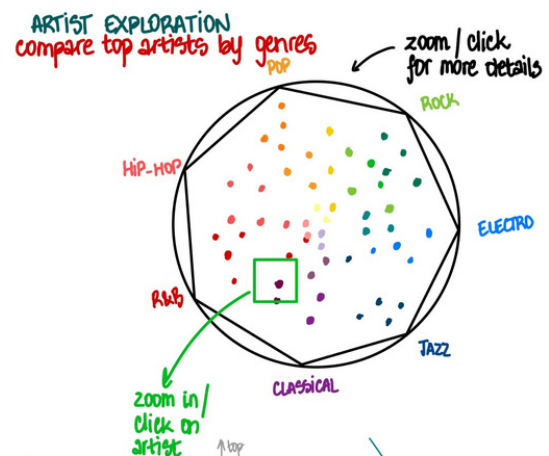 ARTIST EXPLORATION
compare top artists by genres
zoom / click
for more details
POP
ROCK
HIP-HOP
ELECTRO
R&B
JAZZ
CLASSICAL
zoom in /
click on
artist
↑ top